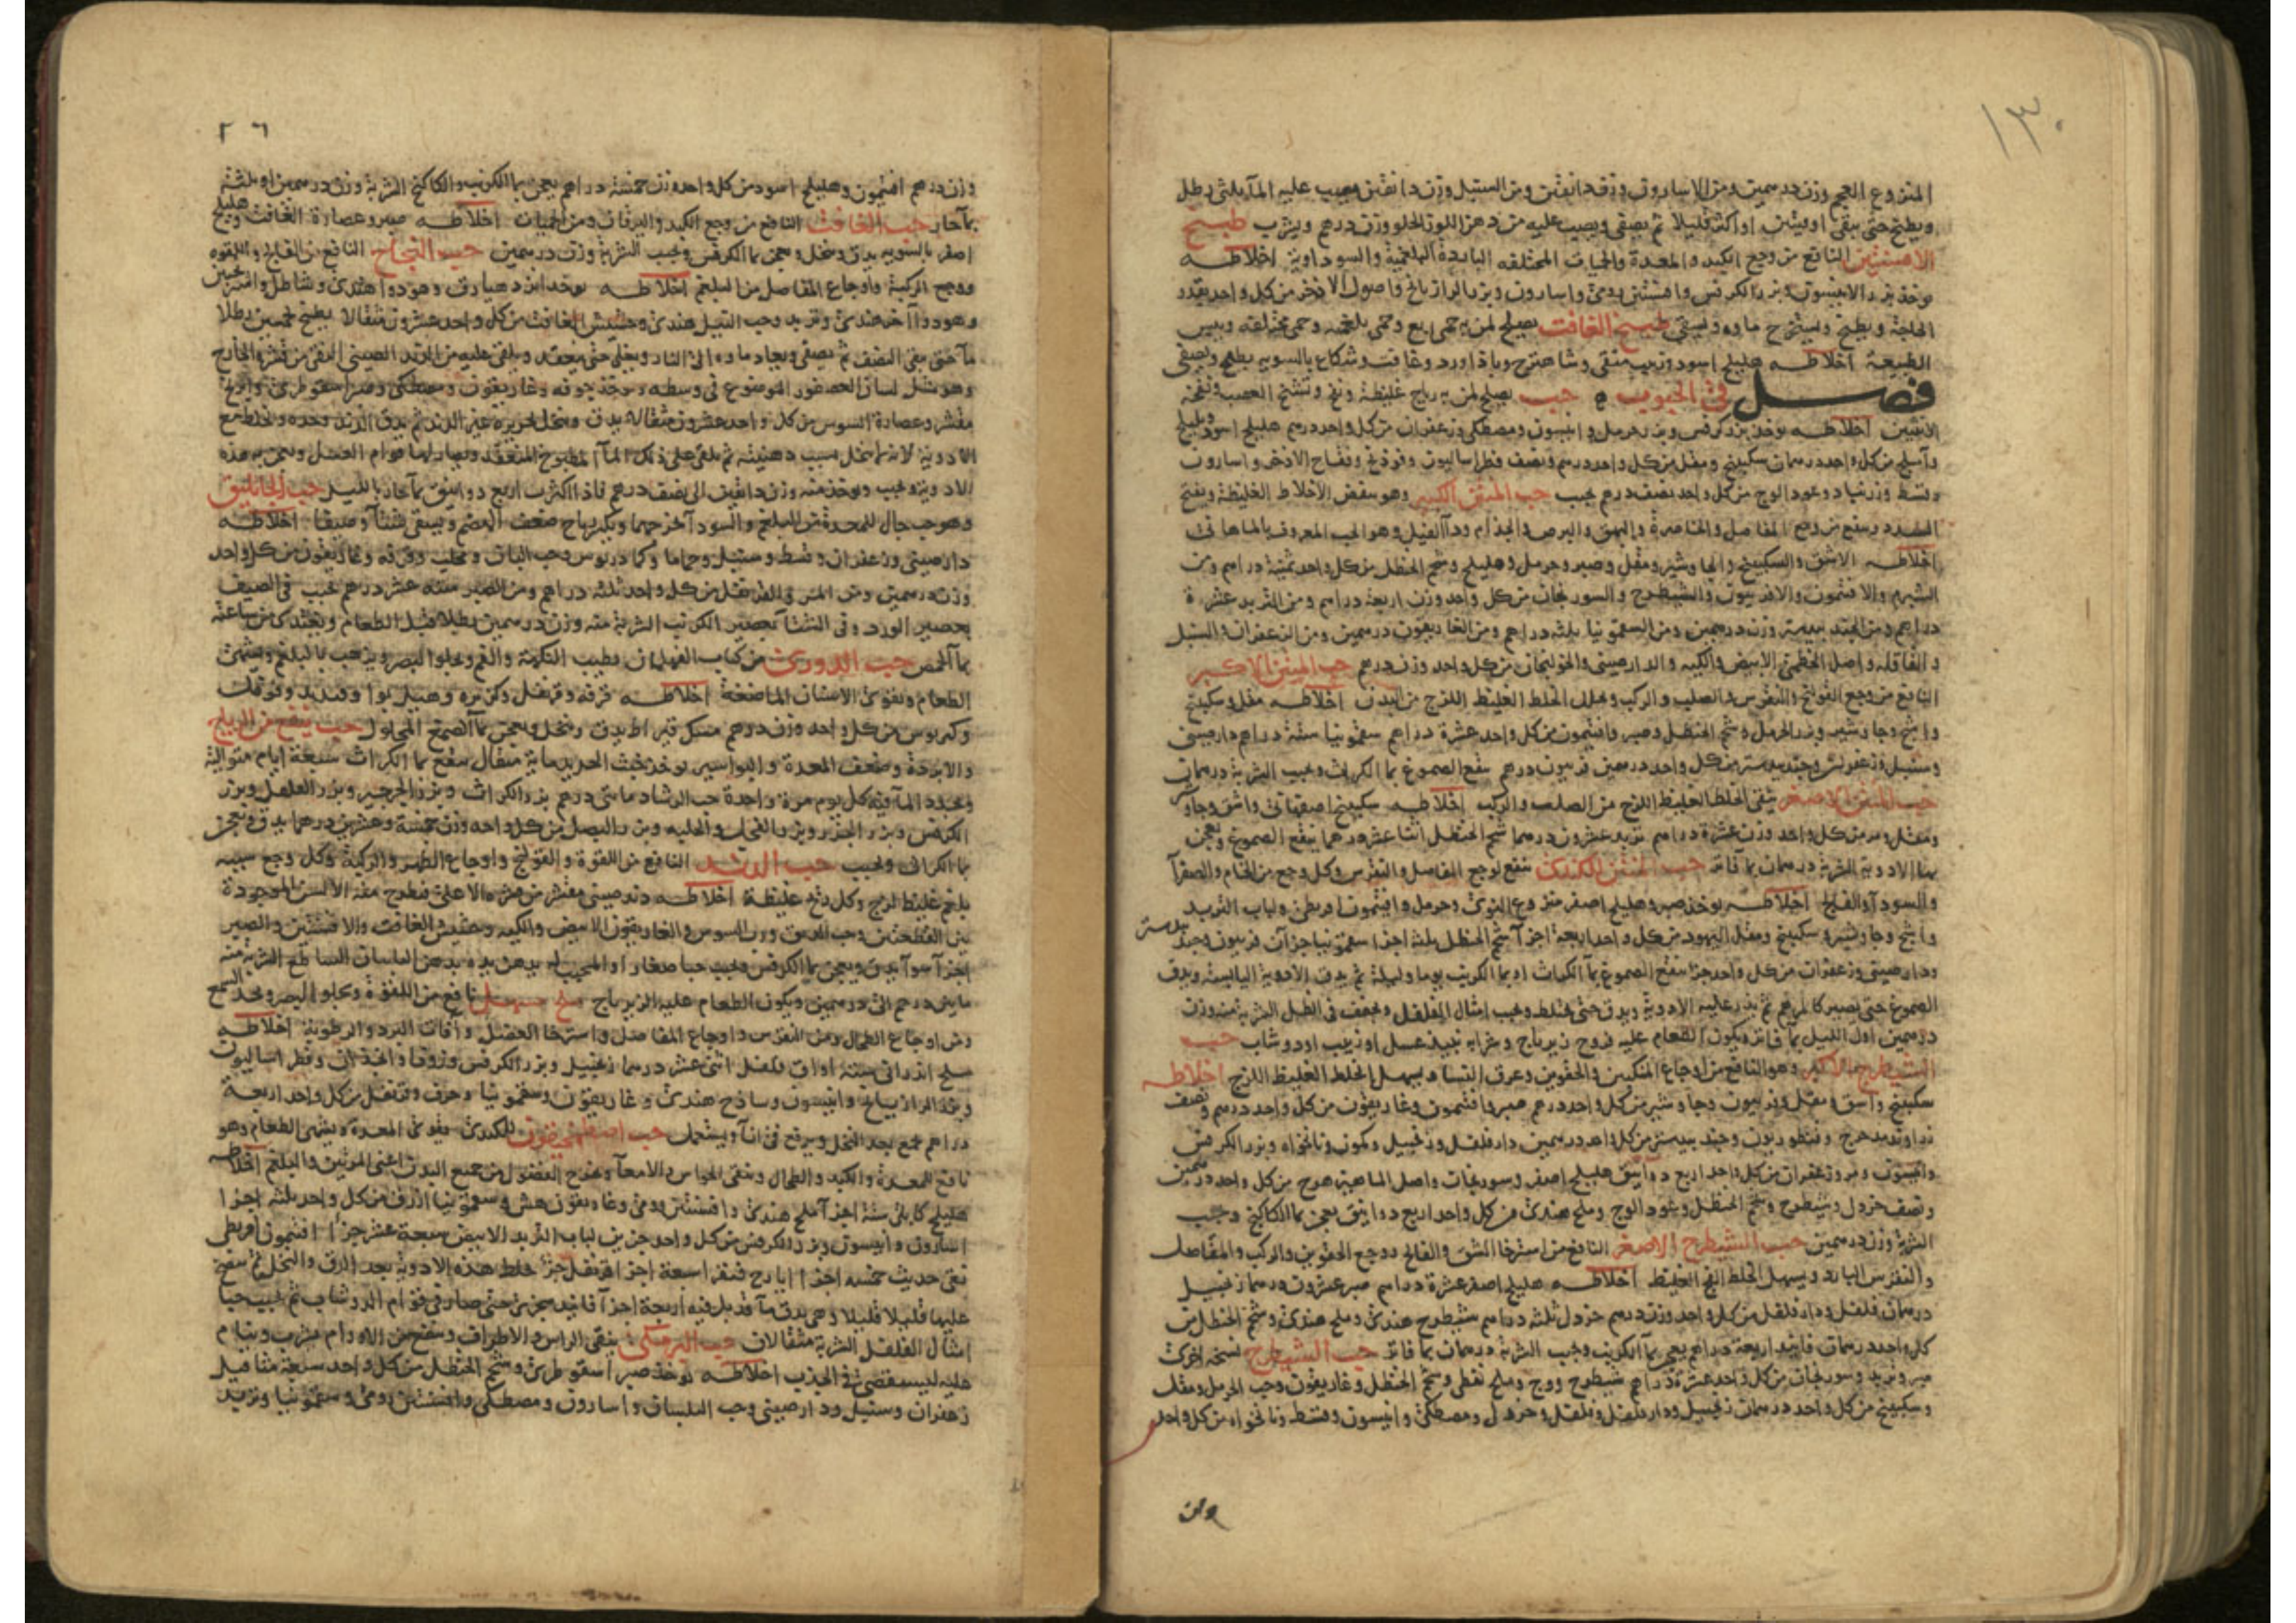 ١٣٠
المنزوع العجم وزن درهمين ومن الاسارون وزن دانقين ومن السنبل وزن دانقين ويصب عليه المآ ثلثى رطل
ويطبخ حتى يبقى اوقيتين او اكثر قليلا ثم يصفى ويصب عليه من دهن اللوز الحلو وزن درهم ويشرب طبيخ
الافسنتين النافع من وجع الكبد والمعدة والحميات المختلفه الباردة البلغمية والسوداوية اخلاطه
يوخذ بزر الانيسون وبزر الكرفس وافسنتين رومى واسارون وبزر الرازيانج واصول الاذخر من كل واحد بقدر
الحاجة ويطبخ ويستخرج ماوه ويسقى طبيخ الغافت يصلح لمن به حمى ربع وحمى بلغميه وحمى مختلفه ويبس
الطبيعة اخلاطه هليلج اسود وزبيب منقى وشاهترج وباذاورد وغافت وشكاع بالسويه يطبخ ويصفى
فصل فى الحبوب حب يصلح لمن به رياح غليظة ونفخ وتشنج العصب ونفخة
الانثيين اخلاطه يوخذ بزر كرفس وبزر حرمل وانيسون ومصطكى وزعفران من كل واحد درهم هليلج اسود وبليلج
واملج من كل واحد درهمان سكبينج ومقل من كل واحد درهم ونصف فطراساليون وفوذنج وفقاح الاذخر واسارون
وقسط وزرنباد وعود الوج من كل واحد نصف درهم يحبب حب المنتن الكبير وهو ينفض الاخلاط الغليظة ويفتح
السدد وينفع من وجع المفاصل والخاصرة والبهق والبرص والجذام ودآ الفيل وهو الحب المعروف بالماهانى
اخلاطه الاشق والسكبينج والجاوشير ومقل وصبر وحرمل وهليلج وشحم الحنظل من كل واحد ثمنية دراهم ومن
الشبرم والافتيمون والافربيون والشيطرج والسورنجان من كل واحد وزن اربعة دراهم ومن التربد عشرة
دراهم ومن الجندبيدستر وزن درهمين ومن السقمونيا ثلثة دراهم ومن الغاريقون درهمين ومن الزعفران والسنبل
والقاقله واصل الخطمى الابيض والكيه والدارصينى والخولنجان من كل واحد وزن درهم حب المنتن الاكبر
النافع من وجع القولنج والنقرس والصلب والركب الخلط الغليظ اللزج من البدن اخلاطه مقل وسكبينج
واشج وجاوشير وبزر الحرمل وشحم الحنظل وصبر وافتيمون من كل واحد عشرة دراهم سقمونيا ستة دراهم دارصينى
وسنبل وزعفران وجندبيدستر من كل واحد درهمين فربيون درهم ينقع الصموغ بما الكراث ويحبب الشربة درهمان
حب المنتن الاصغر ينقى الخلط الغليظ اللزج من الصلب والركب اخلاطه سكبينج اصفهانى واشق وجاوشير
ومقل وصبر من كل واحد وزن عشرة دراهم تربد عشرون درهما شحم الحنظل اثنا عشر درهما ينقع الصموغ ويعجن
بها الادوية الشربة درهمان بما فاتر حب المنتن للكندى ينفع لوجع المفاصل والنقرس وكل وجع من الخام والصفرآ
والسودآ والفالج اخلاطه يوخذ صبر وهليلج اصفر منزوع النوى وحرمل وافتيمون اقريطى ولباب التربد
واشج وجاوشير وسكبينج ومقل اليهود من كل واحد اربعة اجزآ شحم الحنظل ثلثة اجزا سقمونيا جزآن فربيون وجندبيدستر
ودارصينى وزعفران من كل واحد جزا ينقع الصموغ بمآ الكراث او بما الكرنب يوما وليلة ثم يدق الادوية اليابسة ويدق
الصموغ حتى يصير كالمرهم ثم يذر عليه الادوية ويدق حتى يختلط ويحبب امثال الفلفل ويجفف فى الظل الشربة منه وزن
درهمين اول الليل بما فاتر ويكون الطعام عليه فروج زيرباج وشرابه نبيذ عسل او زبيب او دوشاب حب
الشيطرج الاكبر وهو النافع من اوجاع المنكبين والحقوين وعرق النسا ويسهل الخلط الغليظ اللزج اخلاطه
سكبينج واشق ومقل وفربيون وجاوشير من كل واحد درهم صبر وافتيمون وغاريقون من كل واحد درهم ونصف
زراوند مدحرج وقنطوريون وجندبيدستر من كل واحد درهمين دارفلفل وزنجبيل وكمون ونانخواه وبزر الكرفس
وانيسون ومر وزعفران من كل واحد اربع دوانيق هليلج اصفر وسورنجان واصل الماهيزهرج من كل واحد درهمين
ونصف خردل وشيطرج وشحم الحنظل وعود الوج وملح هندى من كل واحد اربع دوانيق يعجن بما الكاكنج ويحبب
الشربة وزن درهمين حب الشيطرج الاصغر النافع من استرخا الشق والفالج ووجع الحقوين والركب والمفاصل
والنقرس البارد ويسهل الخلط النى الغليظ اخلاطه هليلج اصفر عشرة دراهم صبر عشرون درهما زنجبيل
درهمان فلفل ودارفلفل من كل واحد وزن درهم خردل ثلثه دراهم شيطرج هندى وملح هندى وشحم الحنظل من
كل واحد درهمان فانيد اربعة دراهم يعجن بمآ الكرنب ويحبب الشربة درهمان بما فاتر حب الشيطرج نسخه اخرى
صبر وتربد وسورنجان من كل واحد عشرة دراهم شيطرج ووج وملح نفطى وشحم الحنظل وغاريقون وحب الحرمل ومقل
وسكبينج من كل واحد درهمان زنجبيل ودارفلفل وفلفل وخردل ومصطكى وانيسون وقسط ونانخواه من كل واحد
وزن
وزن درهم افتيمون وهليلج اسود من كل واحد وزن خمسة دراهم يعجن بما الكرنب والكاكنج الشربة وزن درهمين او ثلثة
بمآ حار حب الغافت النافع من وجع الكبد واليرقان ومن الحميات اخلاطه صبر وعصارة الغافت وهليلج
اصفر بالسويه يدق وينخل ويعجن بما الكرفس ويحبب الشربة وزن درهمين حب النجاح النافع من الفالج واللقوه
ووجع الركبة واوجاع المفاصل من البلغم اخلاطه يوخذ
ماء حتى يبقى النصف ثم يصفى ويعاد ماوه الى النار ويغلى حتى ينعقد ويلقى عليه من الزند الصينى المنقى من قشره الخارج
مقشر وعصارة السوس من كل واحد عشرون مثقالا يدق وينخل بحريره غير الزند ثم يدق الزند وحده ويخلط مع
الادوية لانه لا ينخل بسبب دهنيته ثم يلقى على ذلك المآ المطبوخ المنعقد
الادوية ويحبب ويوخذ منه وزن دانقين الى نصف درهم فاذا اكثرت اربع دوانيق بمآ حار بالليل حب الجاثليق
وهو حب جال للمعدة من البلغم والسودآ
دارصينى وزعفران وقسط وسنبل وحماما وكمادريوس وحب البان ومحلب وقرفه وغاريقون من كل واحد
وزن درهمين ومن المر والقرنفل من كل واحد ثلثه دراهم ومن الصبر سته عشر درهم يحبب فى الصيف
بعصير الورد وفى الشتآ بعصير الكرنب الشربة منه وزن درهمين بطلا قبل الطعام ويغتذى من ساعته
بمآ الحمص حب الدورى من كتاب يطيب النكهة والفم ويجلوا البصر ويذهب بالبلغم ويشهى
الطعام ويقوى الاسنان الماضغة اخلاطه قرفه وقرنفل وكزبره وهيل بوا
من كل واحد وزن درهم مسك قيراط يدق وينخل ويعجن بمآ الصمغ المحلول حب ينفع من الرياح
والابردة وضعف المعدة والبواسير يوخذ خبث الحديد ماية مثقال ينقع بما الكراث سبعة ايام متوالية
ويجدد المآ فيه كل يوم مرة واحدة حب الرشاد مائتى درهم بزر الكراث وبزر الجرجير وبزر
الكرفس وبزر الجزر وبزر الفجل والحلبه وبزر البصل من كل واحد وزن خمسة وعشرين درهما يدق ويعجن
بما الكراث ويحبب حب الزند النافع من اللقوة والقولنج واوجاع الظهر والركبة وكل وجع سببه
بلغم غليظ لزج وكل ريح غليظة اخلاطه زند صينى مقشر من قشره الاعلى فيطرح منه الالسن الموجودة
بين القطعتين ورب السوس والغاريقون الابيض والكيه وحشيش الغافت والافسنتين والصبر
اجزآ سوآ يدق ويعجن بما الكرفس ويحبب حبا صغارا والمحبب له يدهن يده بدهن البلسان
ما بين درهم الى درهمين ويكون الطعام عليه الزيرباج ملح مسهل نافع من اللقوة ويجلوا البصر ويحد السمع
ومن اوجاع الطحال ومن النقرس واوجاع المفاصل واسترخا العضل وآفات البرد والرطوبة اخلاطه
ملح اندرانى ستة اواق فلفل اثنى عشر درهما زنجبيل وبزر الكرفس وزوفا وانجذان وفطراساليون
وبزر الرازيانج وانيسون وساذج هندى وغاريقون وسقمونيا وحرف وقرنفل من كل واحد اربعة
دراهم يجمع بعد النخل ويرفع فى انآ ويستعمل حب للكندى يقوى المعدة ويشهى الطعام وهو
نافع للمعدة والكبد والطحال وينقى الحواس والامعآ ويخرج الفضول من جميع البدن اعنى المرتين والبلغم اخلاطه
هليلج كابلى ستة اجزآ ملح هندى وافسنتين رومى وغاريقون هش وسقمونيا ازرق من كل واحد ثلثه اجزا
اسارون وانيسون وبزر الكرفس من كل واحد جزين لباب التربد الابيض سبعة عشر جزءا افتيمون اقريطى
نقى حديث خمسه اجزا ايارج فيقرا سبعة اجزا قرنفل جزء خلط هذه الادوية بعد الدق والنخل
امثال الفلفل الشربة مثقالان حب البرمكى ينقى الراس والاطراف وينفع من الاورام يشرب وينام
عليه اخلاطه يوخذ صبر اسقوطرى وشحم الحنظل من كل واحد سبعة مثاقيل
زعفران وسنبل ودارصينى وحب البلسان واسارون ومصطكى وافسنتين رومى وسقمونيا وتربد